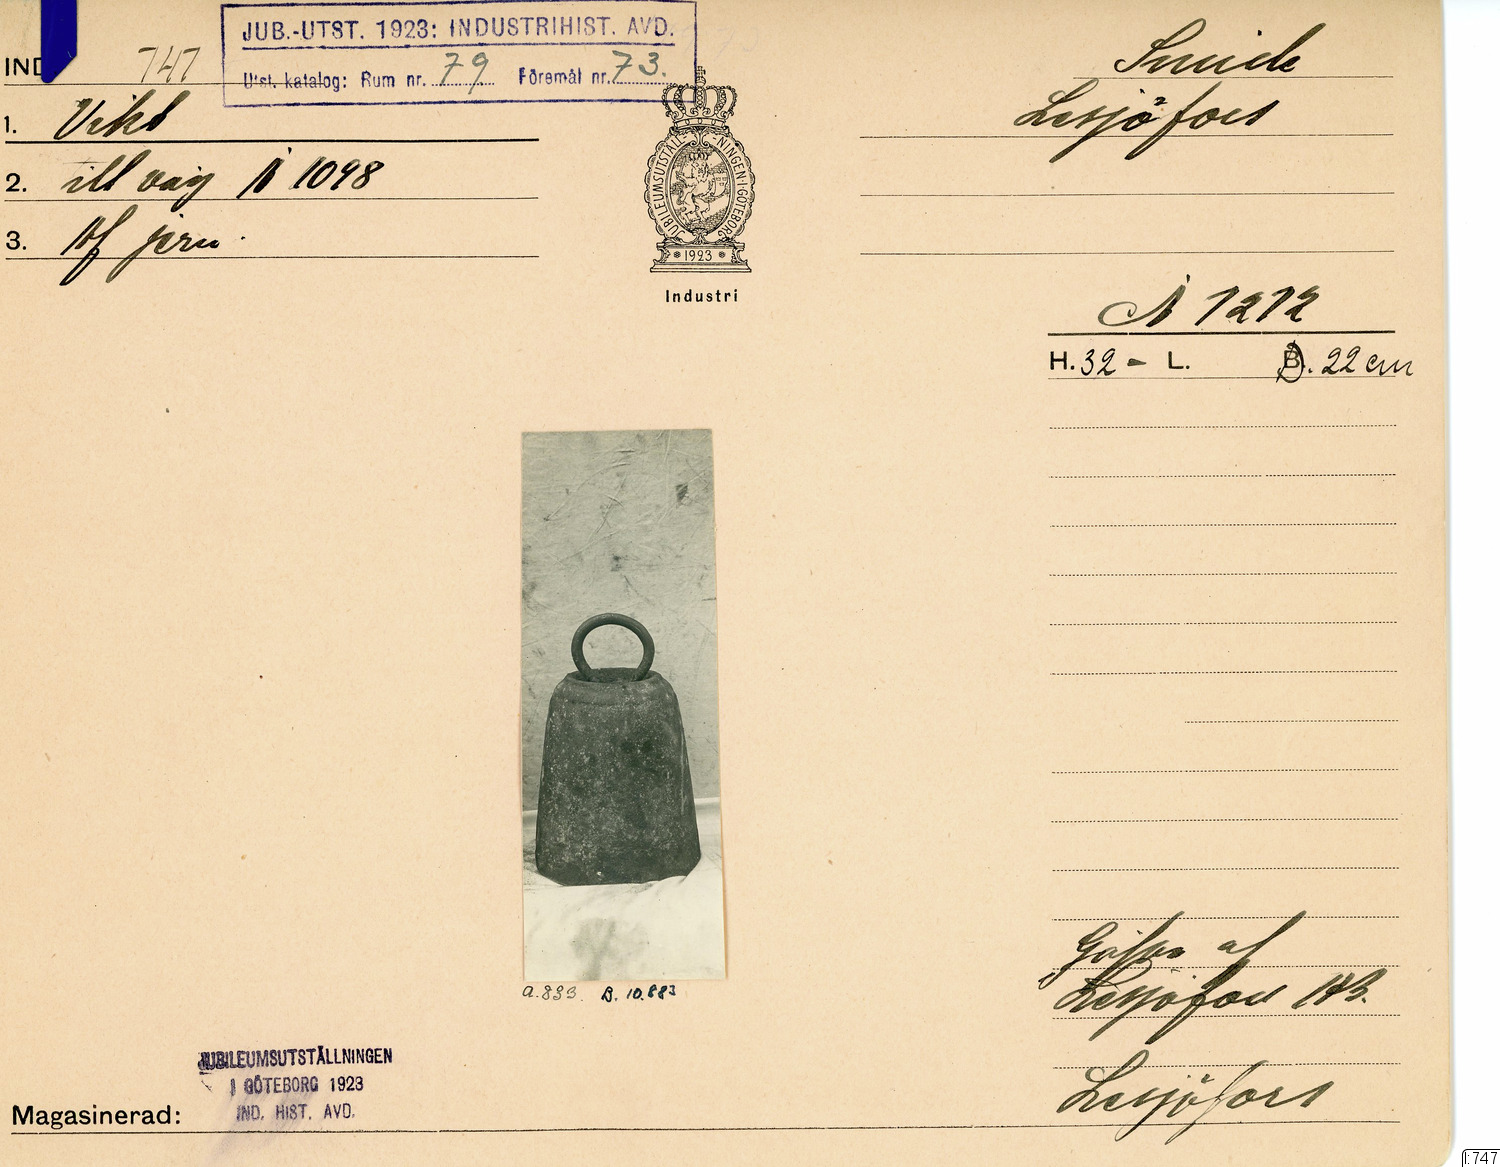 JUB.-UTST. 1923: INDUSTRIHIST. AVD.
Utst. katalog: Rum nr. 79 Föremål nr. 73.
IND 747
1. Vikt
2. till våg Å 1098
3. Af järn.
JUBILEUMSUTSTÄLL-NINGEN·I·GÖTEBORG
* 1923 *
Industri
Smide
Lesjöfors
Å 1212
H. 32 - L. D. 22 cm
a. 833. B. 10.883
Gåfva af
Lesjöfors AB.
Lesjöfors
JUBILEUMSUTSTÄLLNINGEN
I GÖTEBORG 1923
IND. HIST. AVD.
Magasinerad:
I:747